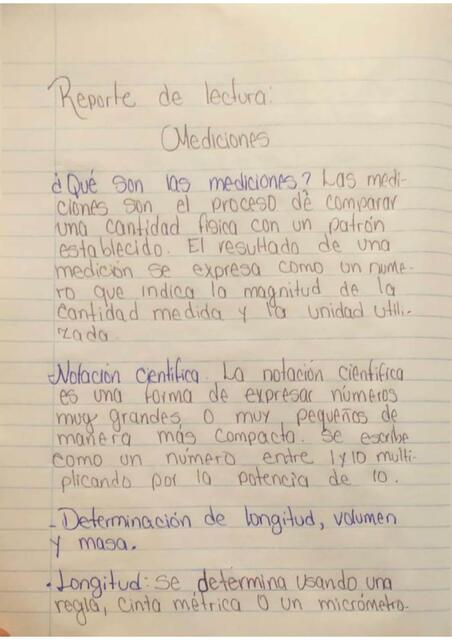 Reporte de lectura:
Mediciones
¿Qué son las mediciones? Las medi-
ciones son el proceso de comparar
una cantidad física con un patrón
establecido. El resultado de una
medición se expresa como un nume-
ro que indica la magnitud de la
cantidad medida y la unidad utili-
zada.
-Notación científica. La notación científica
es una forma de expresar números
muy grandes o muy pequeños de
manera más compacta. Se escribe
como un número entre 1 y 10 multi-
plicando por la potencia de 10.
- Determinación de longitud, volumen
y masa.
• Longitud: se determina usando una
regla, cinta métrica o un micrómetro.